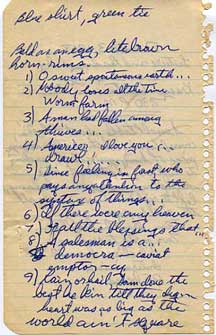 Blue shirt, green tie
Bald as an egg, lite brown
horn-rims.
1) O sweet spontaneous earth...
2) Nobody loses all the time
Worm farm
3) A man had fallen among
thieves...
4) America I love you (...
drawl)....
5) Since feeling is first who
pays any attention to the
syntax of things...
6) If there were any heaven
7) the blessings that...
8) A salesman is a...
democra – caviat
emptor – cy.
9) rain or hail, Sam done the
best he kin till they dign
heart was as big as the
world ain't square